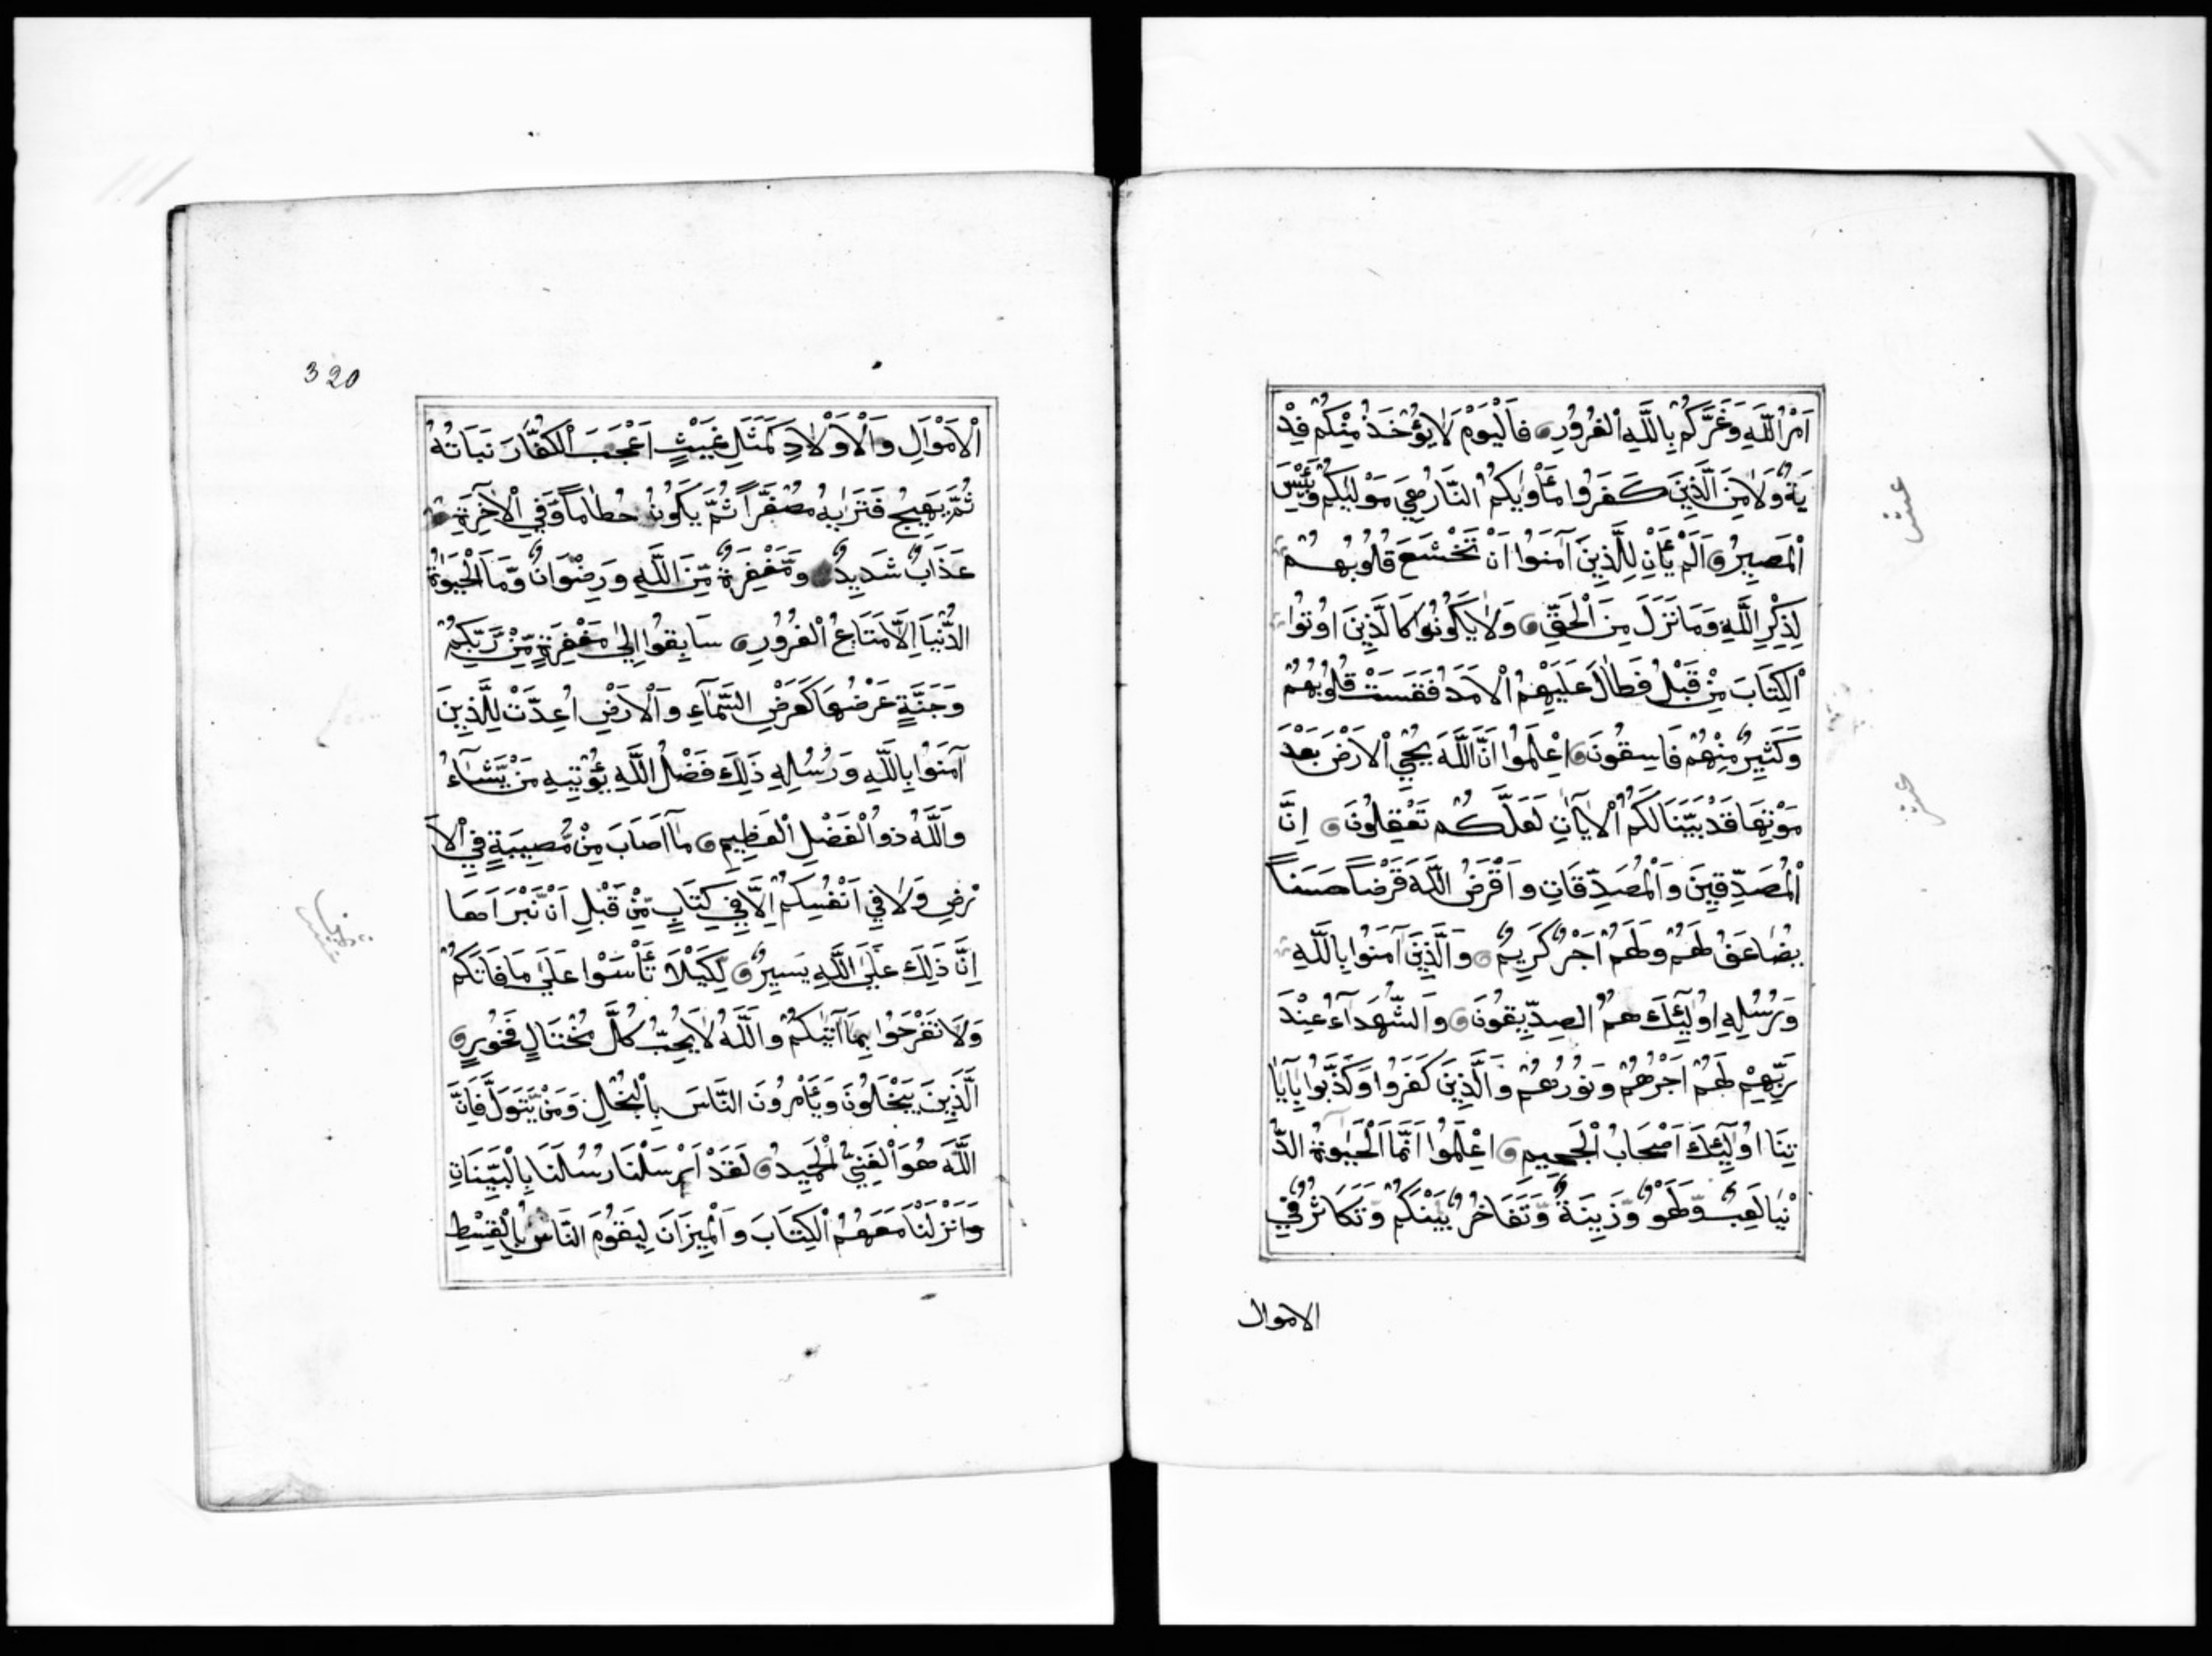 اَمْرُ اللّٰهِ وَغَرَّكُمْ بِاللّٰهِ الْغُرُورُ فَالْيَوْمَ لَا يُؤْخَذُ مِنْكُمْ فِدْ
يَةٌ وَلَا مِنَ الَّذِينَ كَفَرُوا مَأْوٰيكُمُ النَّارُ هِيَ مَوْلٰيكُمْ وَبِئْسَ
الْمَصِيرُ اَلَمْ يَأْنِ لِلَّذِينَ آمَنُوا اَنْ تَخْشَعَ قُلُوبُهُمْ
لِذِكْرِ اللّٰهِ وَمَا نَزَلَ مِنَ الْحَقِّ وَلَا يَكُونُوا كَالَّذِينَ اُوتُوا
الْكِتَابَ مِنْ قَبْلُ فَطَالَ عَلَيْهِمُ الْاَمَدُ فَقَسَتْ قُلُوبُهُمْ
وَكَثِيرٌ مِنْهُمْ فَاسِقُونَ اِعْلَمُوا اَنَّ اللّٰهَ يُحْيِ الْاَرْضَ بَعْدَ
مَوْتِهَا قَدْ بَيَّنَّا لَكُمُ الْاٰيَاتِ لَعَلَّكُمْ تَعْقِلُونَ اِنَّ
الْمُصَدِّقِينَ وَالْمُصَدِّقَاتِ وَاَقْرَضُ اللّٰهَ قَرْضًا حَسَنًا
يُضَاعَفُ لَهُمْ وَلَهُمْ اَجْرٌ كَرِيمٌ وَالَّذِينَ آمَنُوا بِاللّٰهِ
وَرُسُلِهِ اُولٰٓئِكَ هُمُ الصِّدِّيقُونَ وَالشُّهَدَآءُ عِنْدَ
رَبِّهِمْ لَهُمْ اَجْرُهُمْ وَنُورُهُمْ وَالَّذِينَ كَفَرُوا وَكَذَّبُوا بِاٰيَا
تِنَا اُولٰٓئِكَ اَصْحَابُ الْجَحِيمِ اِعْلَمُوا اَنَّمَا الْحَيٰوةُ الدُّ
نْيَا لَعِبٌ وَّلَهْوٌ وَّزِينَةٌ وَّتَفَاخُرٌ بَيْنَكُمْ وَتَكَاثُرٌ فِي
الاموال
320
الْاَمْوَالِ وَالْاَوْلَادِ كَمَثَلِ غَيْثٍ اَعْجَبَ الْكُفَّارَ نَبَاتُهُ
ثُمَّ يَهِيجُ فَتَرٰيهُ مُصْفَرًّا ثُمَّ يَكُونُ حُطَامًا وَّفِي الْاٰخِرَةِ
عَذَابٌ شَدِيدٌ وَّمَغْفِرَةٌ مِّنَ اللّٰهِ وَرِضْوَانٌ وَّمَا الْحَيٰوةُ
الدُّنْيَا اِلَّا مَتَاعُ الْغُرُورِ سَابِقُوا اِلٰى مَغْفِرَةٍ مِّنْ رَّبِّكُمْ
وَجَنَّةٍ عَرْضُهَا كَعَرْضِ السَّمَآءِ وَالْاَرْضِ اُعِدَّتْ لِلَّذِينَ
آمَنُوا بِاللّٰهِ وَرُسُلِهِ ذٰلِكَ فَضْلُ اللّٰهِ يُؤْتِيهِ مَنْ يَّشَآءُ
وَاللّٰهُ ذُو الْفَضْلِ الْعَظِيمِ مَآ اَصَابَ مِنْ مُّصِيبَةٍ فِي الْاَ
رْضِ وَلَا فِي اَنْفُسِكُمْ اِلَّا فِي كِتَابٍ مِّنْ قَبْلِ اَنْ نَّبْرَاَهَا
اِنَّ ذٰلِكَ عَلَى اللّٰهِ يَسِيرٌ لِّكَيْلَا تَأْسَوْا عَلٰى مَا فَاتَكُمْ
وَلَا تَفْرَحُوا بِمَا آتٰيكُمْ وَاللّٰهُ لَا يُحِبُّ كُلَّ مُخْتَالٍ فَخُورٍ
الَّذِينَ يَبْخَلُونَ وَيَأْمُرُونَ النَّاسَ بِالْبُخْلِ وَمَنْ يَّتَوَلَّ فَاِنَّ
اللّٰهَ هُوَ الْغَنِيُّ الْحَمِيدُ لَقَدْ اَرْسَلْنَا رُسُلَنَا بِالْبَيِّنَاتِ
وَاَنْزَلْنَا مَعَهُمُ الْكِتَابَ وَالْمِيزَانَ لِيَقُومَ النَّاسُ بِالْقِسْطِ